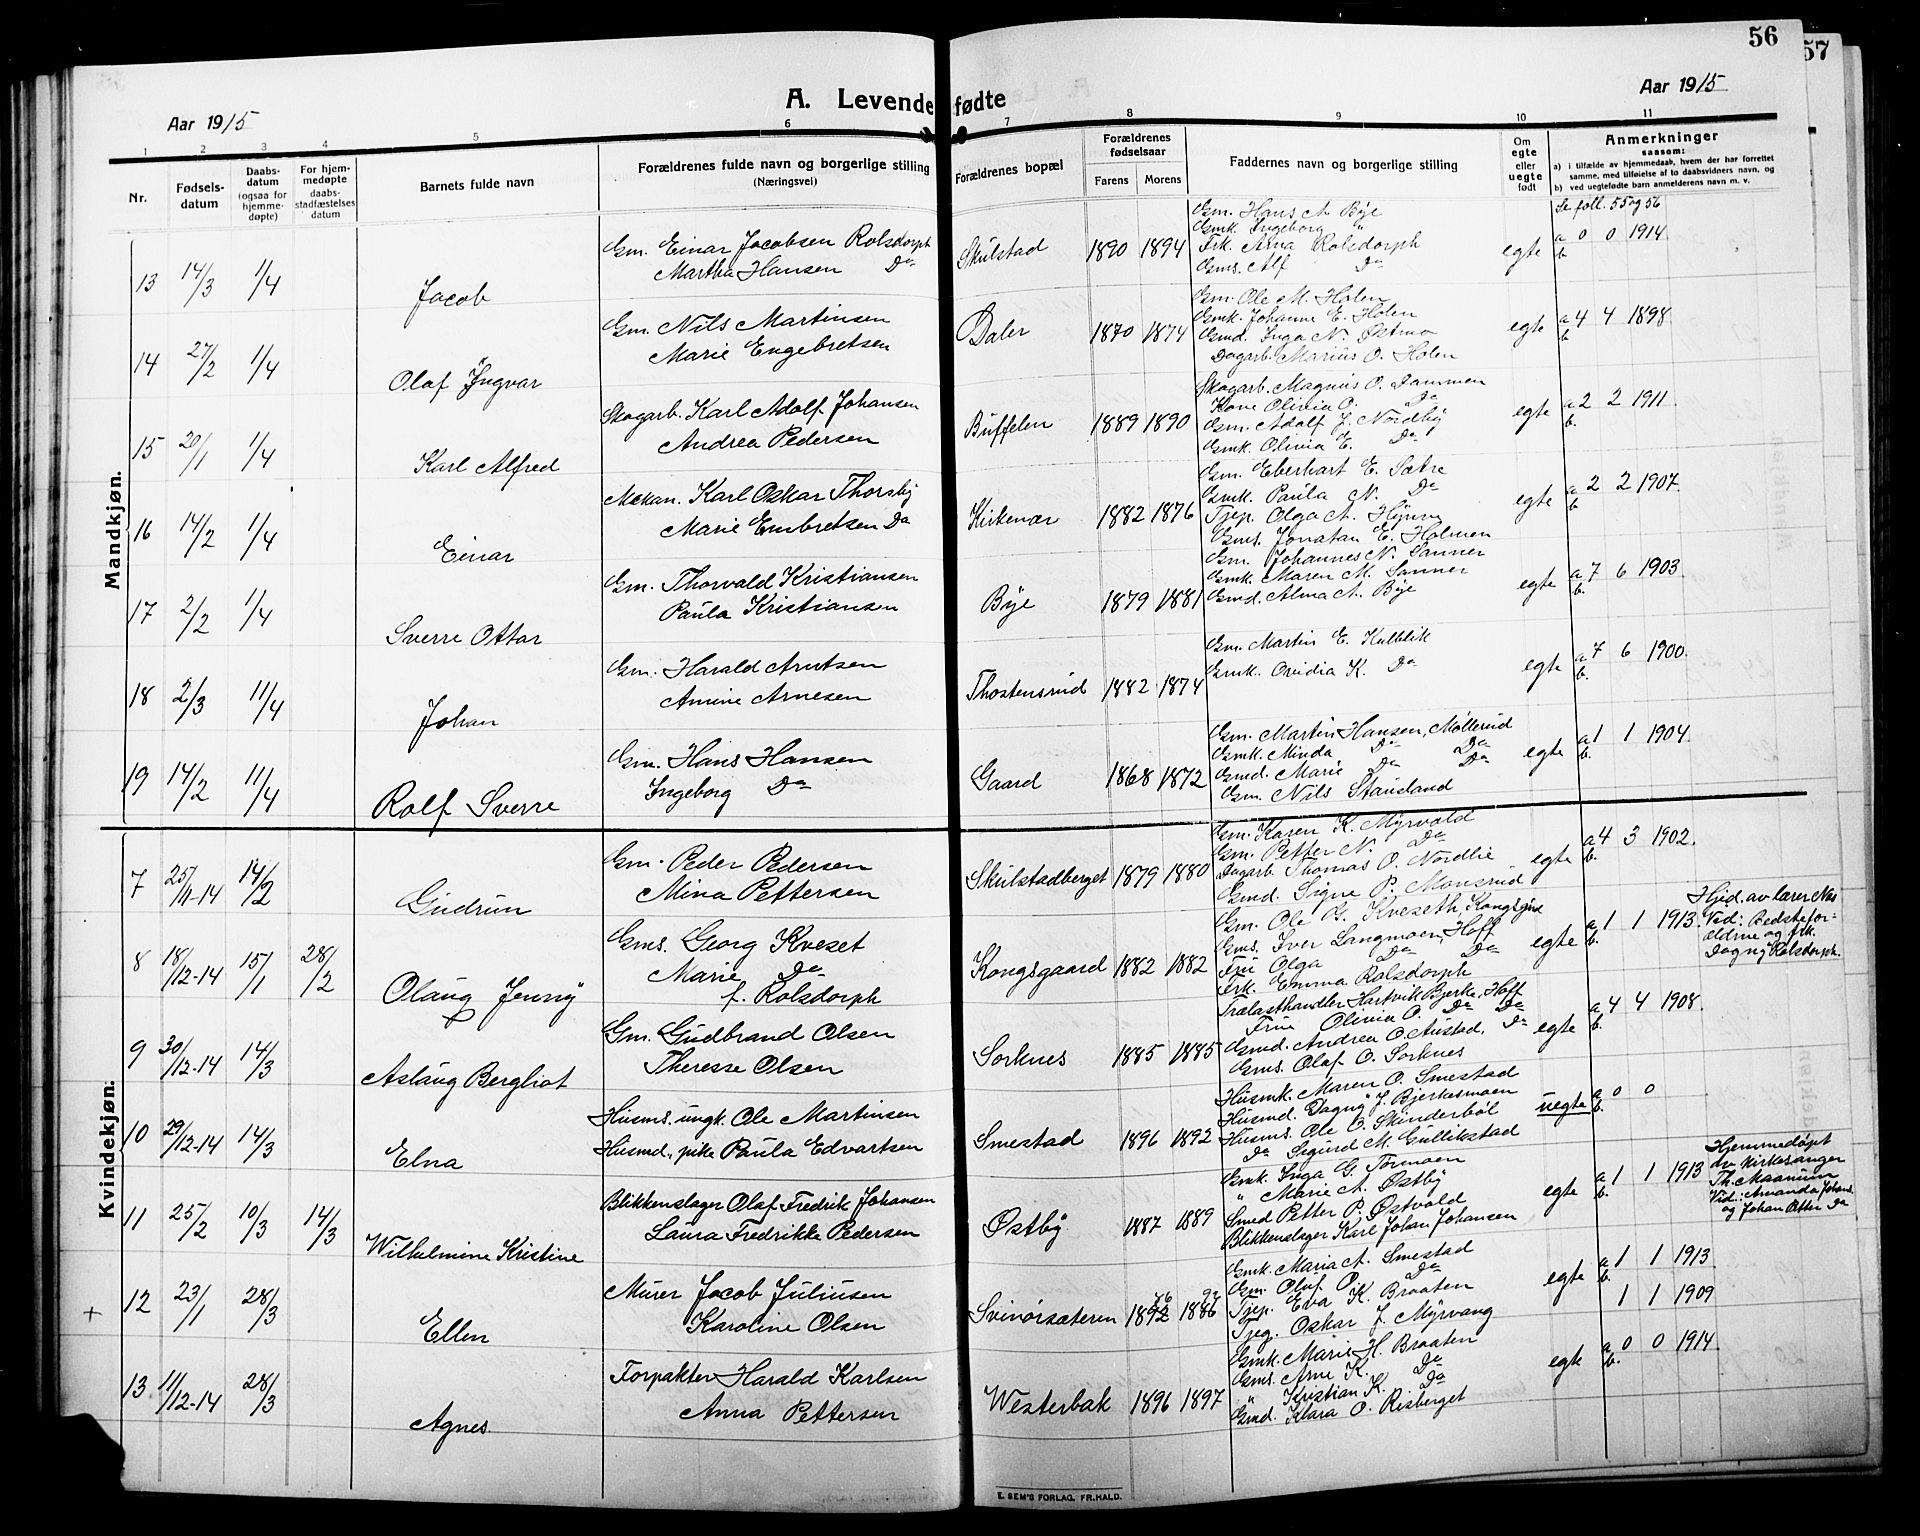 56
57
A. Levende fødte
Aar 1915
Aar 1915
1 2 3 4 5 6 7 8 9 10 11
Nr.
Fødsels-
datum
Daabs-
datum
(ogsaa for
hjemme-
døpte)
For hjem-
medøpte
daabs-
stadfæstelses
datum
Barnets fulde navn
Forældrenes fulde navn og borgerlige stilling
(Næringsvei)
Forældrenes bopæl
Forældrenes
fødselsaar
Farens Morens
Faddernes navn og borgerlige stilling
Om
egte
eller
uegte
født
Anmerkninger
saasom:
a) i tilfælde av hjemmedaab, hvem der har forrettet
samme, med tilføielse af to daabsvidners navn, og
b) ved uegtefødte barn anmelderens navn m. v.
Se foll. 55 og 56
Mandkjøn.
13 14/3 1/4 Jacob
Gm. Einar Jacobsen Rolsdorph
Martha Hansen Do
Skulstad 1890 1894
Gm. Hans A. Bye
Gmk. Ingeborg "
Frk. Anna Rolsdorph
Gms. Alf Do
egte a 0 0 1914
b.
14 27/2 1/4 Olaf Ingvar
Gm. Nils Martinsen
Marie Engebretsen
Daler 1870 1874
Gm. Ole M. Holen
Gmk. Johanne E. Holen
Gmd. Inga N. Østmo
Dagarb. Marius O. Holen
egte a 4 4 1898
b.
15 20/1 1/4 Karl Alfred
Skogarb. Karl Adolf Johansen
Andrea Pedersen
Buffelen 1889 1890
Skogarb. Magnus O. Dammen
Kone Olivia O. Do
Gm. Adolf J. Nordby
Gmk. Olivia E. Do
egte a 2 2 1911
b.
16 14/2 1/4 Einar
Mekan. Karl Oskar Thorsby
Marie Embretsen Do
Kirkenær 1882 1876
Gm. Eberhart E. Sætre
Gmk. Paula N. Do
Tjep. Olga A.
Gms. Jonatan E. Holmen
egte a 2 2 1907
b.
17 2/2 1/4 Sverre Ottar
Gm. Thorvald Kristiansen
Paula Kristiansen
Bye 1879 1881
Gm. Johannes N. Sanner
Gmk. Maren M. Sanner
Gmd. Alma A. Bye
egte a 7 6 1903
b.
18 2/3 11/4 Johan
Gm. Harald Arntsen
Amine Arnesen
Thostensrud 1882 1874
Gm. Martin E. Kulblik
Gmk. Ovidia K. Do
egte a 7 6 1900.
b.
19 14/2 11/4 Rolf Sverre
Gm. Hans Hansen
Ingeborg Do
Gaard 1868 1872
Gm. Martin Hansen, Møllerud
Gmk. Minda Do Do
Gmd. Marie Do Do
Gm. Nils Stausland
egte a 1 1 1904.
b.
Kvindekjøn.
7 25/11-14 14/2 Gudrun
Gm. Peder Pedersen
Mina Pettersen
Skulstadberget 1879 1880
Gm. Karen K. Myrvold
Gm. Petter N. Do
Dagarb. Thomas O. Nordlie
Gmd. Signe P. Monsrud
egte a 4 3 1902.
b.
8 18/12-14 15/1 28/2 Olaug Jenny
Gms. Georg Kveset
Marie Do
f. Rolsdorph
Kongsgaard 1882 1882
Gm. Ole G. Kveseth, Kongsgrd
Gms. Iver Langmoen, Hoff
Fru Olga Do Do
Frk. Emma Rolsdorph
egte a 1 1 1913.
b.
Hjd. av lærer Næs
Vid: Bedstefor-
ældrene og frk.
Dagny Rolsdorph.
9 30/12-14 14/3 Aslaug Bergliot
Gm. Gudbrand Olsen
Theresse Olsen
Sorknes 1885 1885
Trælasthandler Hartvik Bjerke, Hoff
Frue Olivia O. Do Do
Gmd. Andrea O. Austad, Do
Gms. Olaf O. Sorknes
egte a 4 4 1908.
b.
10 29/12-14 14/3 Elna
Husms. ungk. Ole Martinsen
Husmd. pike Paula Edvartsen
Smestad 1896 1892
Husmk. Maren O. Smestad
Husmd. Dagny J. Bjerkesmoen
Husms. Ole O. Skinderbøl
Do Sigurd M. Gullikstad
uegte a 0 0
b.
11 25/2 10/3 14/3 Wilhelmine Kristine
Blikkenslager Olaf Fredrik Johansen
Laura Fredrikke Pedersen
Østby 1887 1889
Gmk. Inga G. Tormoen
" Marie A. Østby
Smed Petter P. Østvold
Blikkenslager Karl Johan Johansen
egte a 1 1 1913
b.
Hjemmedøpt
av kirkesanger
Th. Maanum
Vid: Amanda Johans.
og Johan Petter Do
+ 12 23/1 28/3 Ellen
Murer Jacob Juliusen
Karoline Olsen
Svinørsæteren 1872 76 1886 92
Gmk. Maria A. Smestad
Gm. Oluf P. Do
Tjep. Eva K. Braaten
Tjeg. Oskar J. Myrvang
egte a 1 1 1913
b. 1 1 1909
13 11/12-14 28/3 Agnes.
Forpakter Harald Karlsen
Anna Pettersen
Westerbak 1896 1897
Gmk. Marie H. Braaten
Gms. Arne K. Do
" Kristian K. Do
Gmd. Klara O. Risberget
egte a 0 0 1914
b.
E. SEM'S FORLAG, FR.HALD.